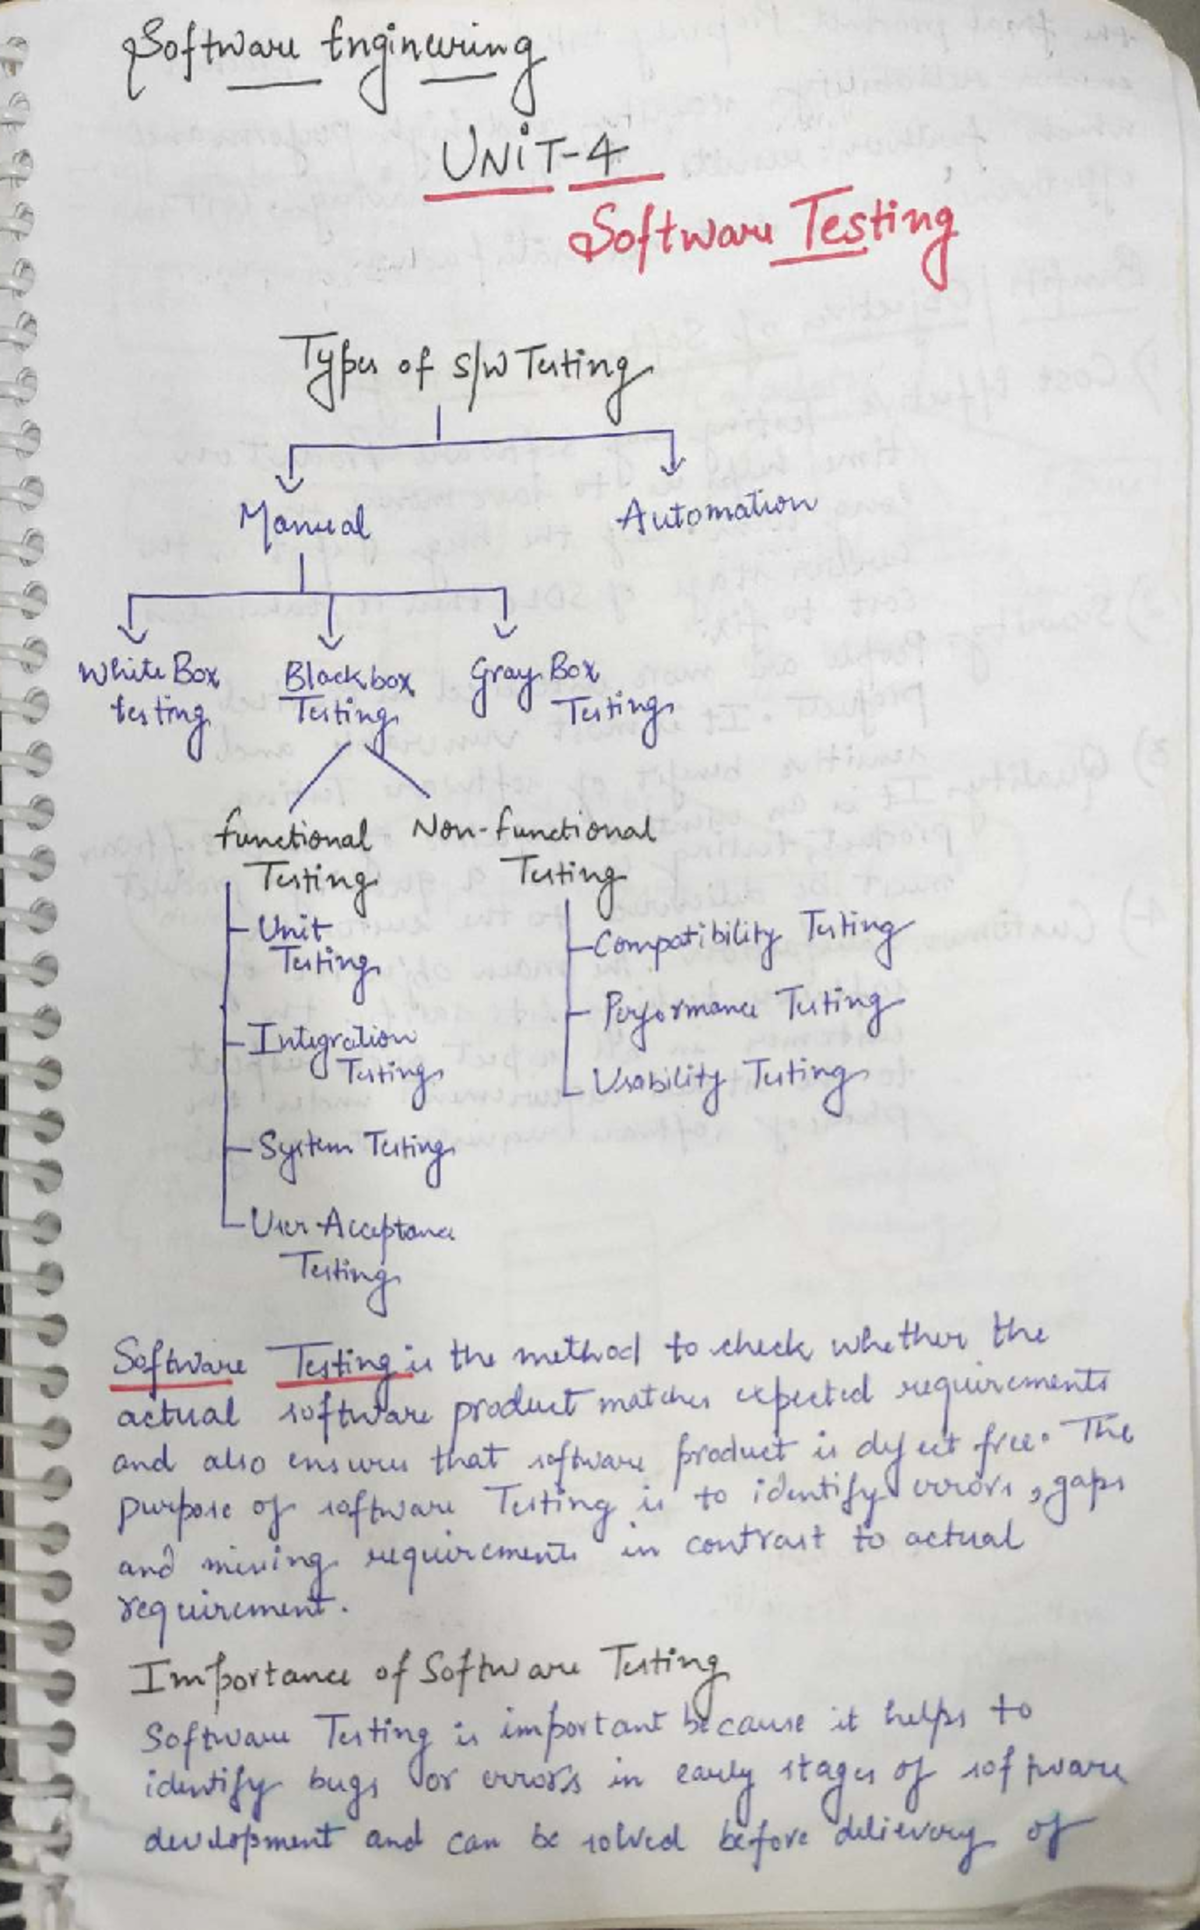 Software Engineering
UNIT-4
Software Testing
Types of S/W Testing
Manual
Automation
White Box
testing
Blackbox
Testing
Gray Box
Testing
functional
Testing
Non-functional
Testing
Unit
Testing
Integration
Testing
System Testing
User Acceptance
Testing
Compatibility Testing
Performance Testing
Usability Testing
Software Testing is the method to check whether the
actual software product matches expected requirements
and also ensures that software product is defect free. The
purpose of software Testing is to identify errors, gaps
and missing requirements in contrast to actual
requirement.
Importance of Software Testing
Software Testing is important because it helps to
identify bugs or errors in early stages of software
development and can be solved before delievery of